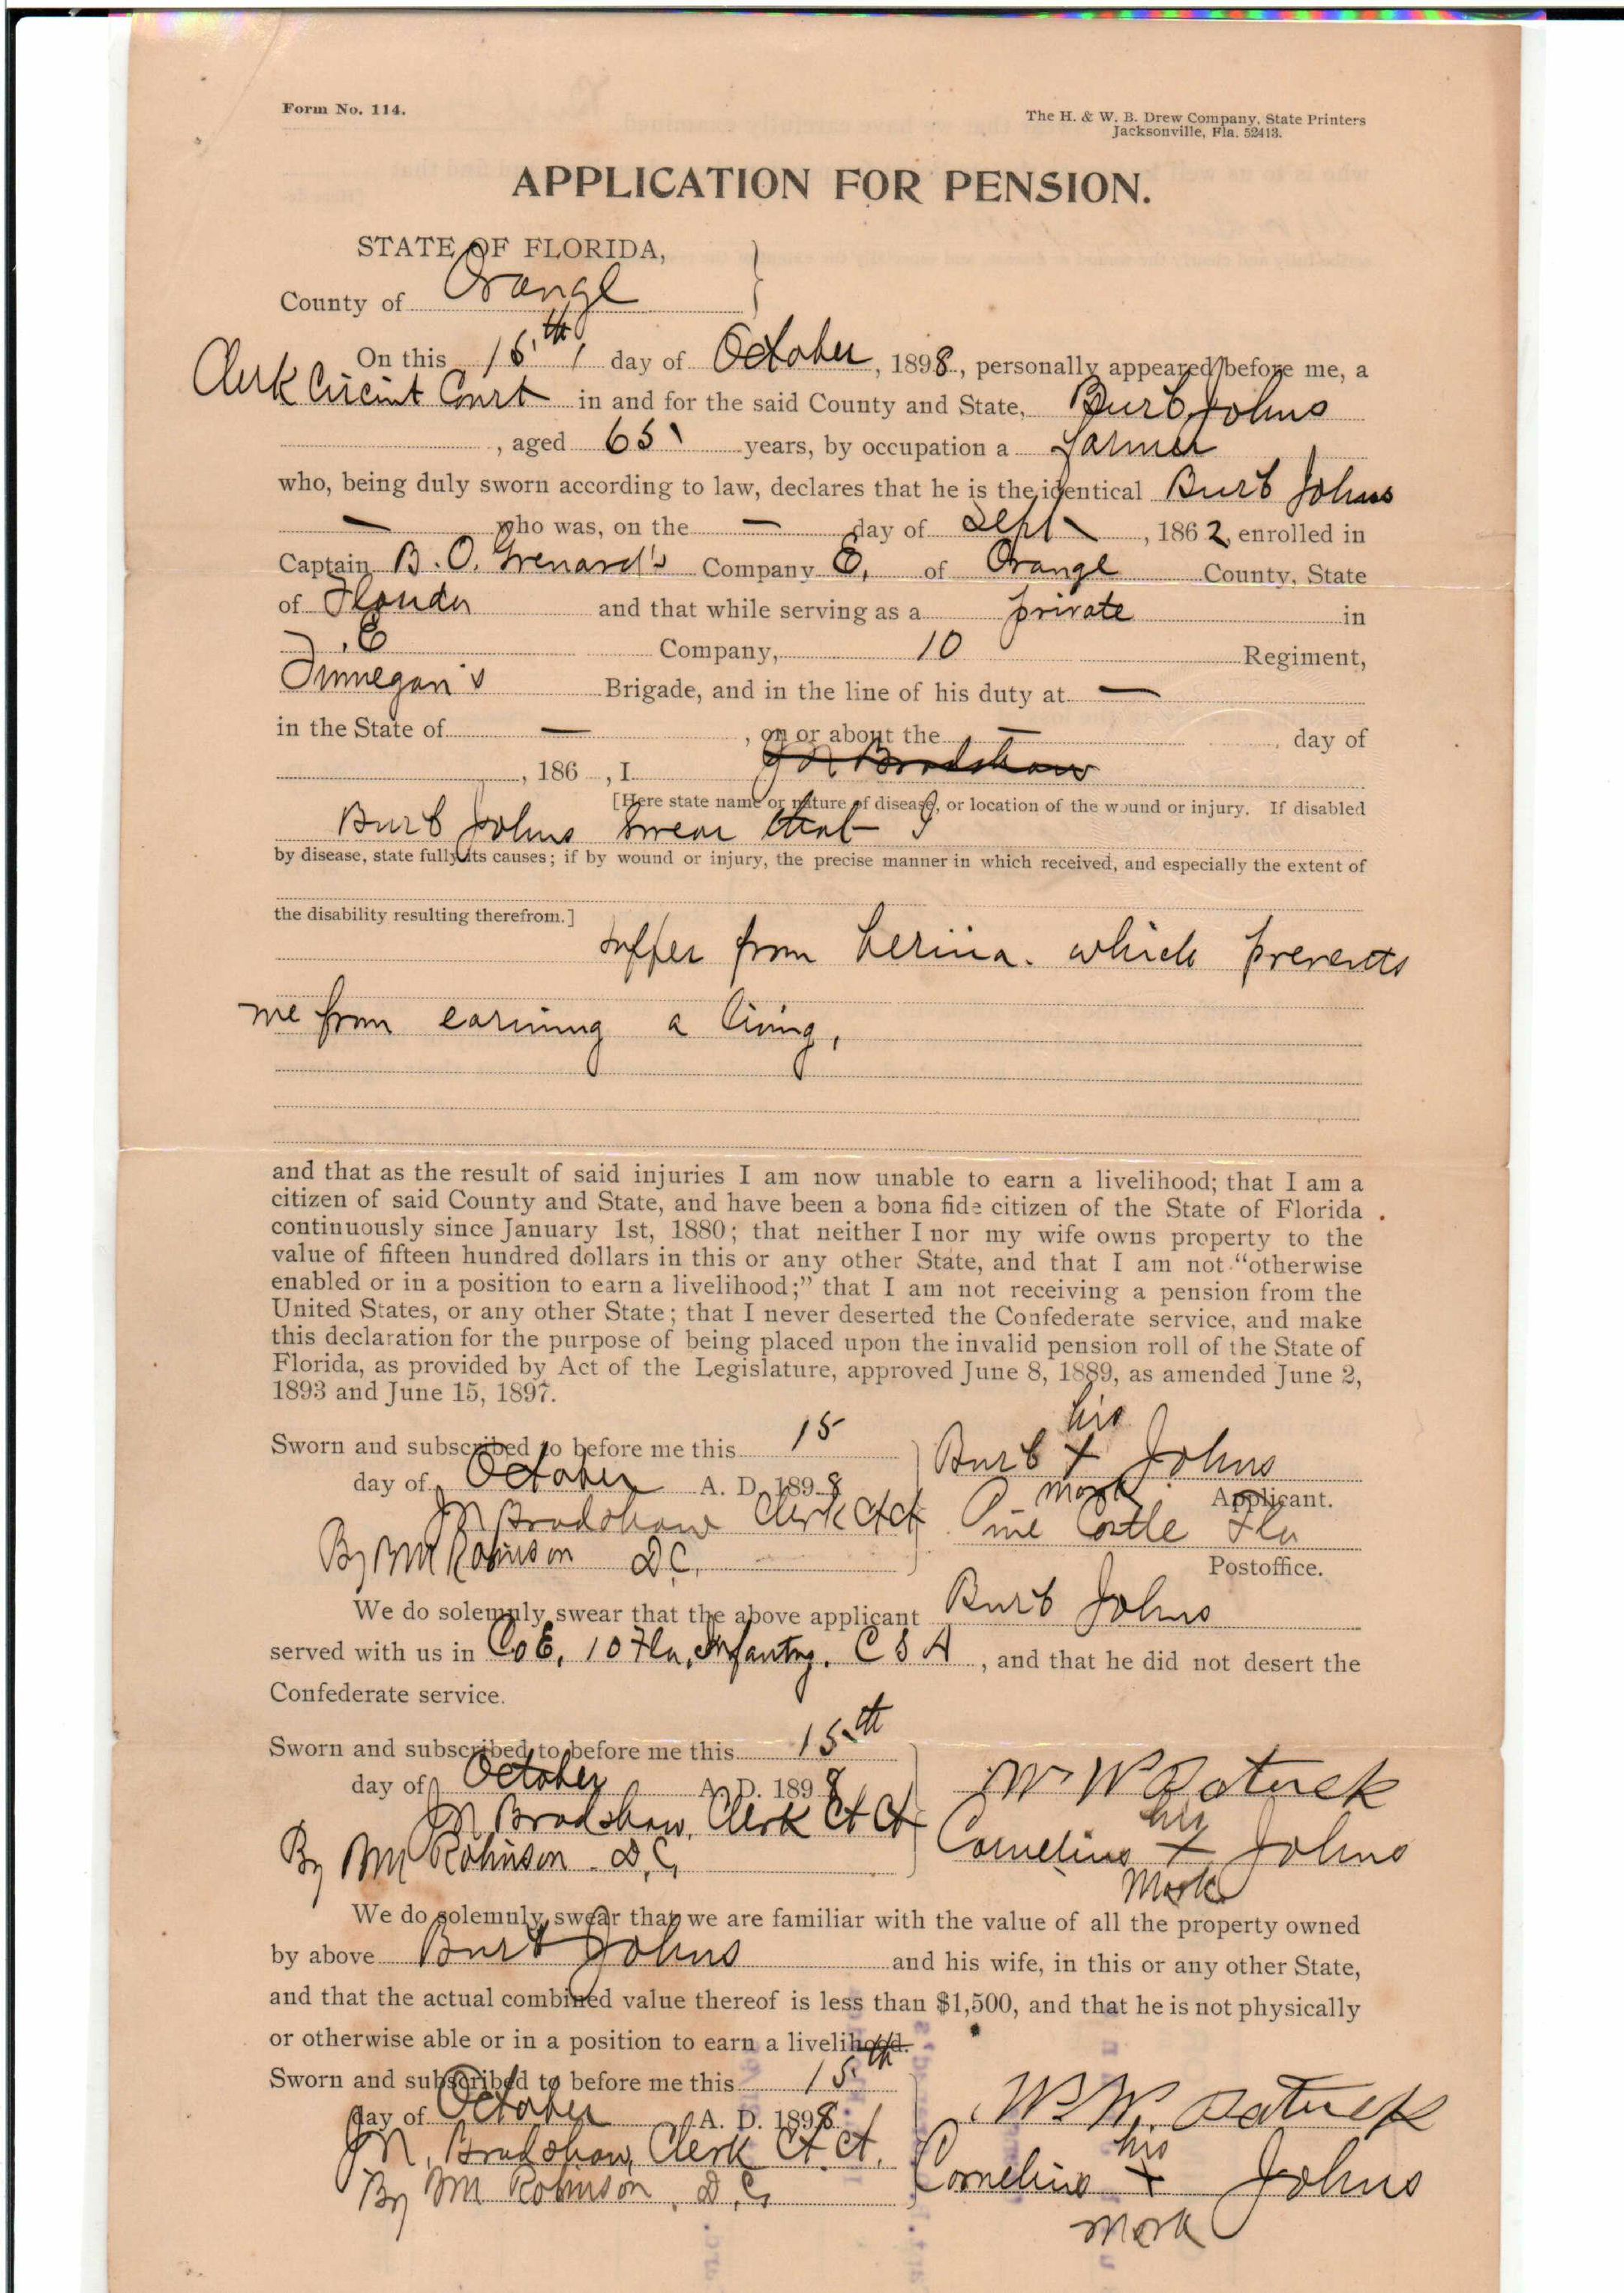 Form No. 114.
The H. & W. B. Drew Company, State Printers
Jacksonville, Fla. 52413.
APPLICATION FOR PENSION.
STATE OF FLORIDA,
County of Orange
On this 15th day of October, 1898, personally appeared before me, a
Clerk Circuit Court in and for the said County and State, Burb Johns
, aged 65 years, by occupation a farmer
who, being duly sworn according to law, declares that he is the identical Burb Johns
— who was, on the — day of Sept, 1862, enrolled in
Captain B. O. Grenard's Company E, of Orange County, State
of Florida and that while serving as a private in
E Company, 10 Regiment,
Finnegan's Brigade, and in the line of his duty at —
in the State of — , on or about the — day of
, 186 , I J M Bradshaw
[Here state name or nature of disease, or location of the wound or injury. If disabled
Burb Johns swear that I
by disease, state fully its causes; if by wound or injury, the precise manner in which received, and especially the extent of
the disability resulting therefrom.]
suffer from hernia. which prevents
me from earning a living,
and that as the result of said injuries I am now unable to earn a livelihood; that I am a
citizen of said County and State, and have been a bona fide citizen of the State of Florida
continuously since January 1st, 1880; that neither I nor my wife owns property to the
value of fifteen hundred dollars in this or any other State, and that I am not "otherwise
enabled or in a position to earn a livelihood;" that I am not receiving a pension from the
United States, or any other State; that I never deserted the Confederate service, and make
this declaration for the purpose of being placed upon the invalid pension roll of the State of
Florida, as provided by Act of the Legislature, approved June 8, 1889, as amended June 2,
1893 and June 15, 1897.
his
Sworn and subscribed to before me this 15 Burb X Johns
day of October A. D. 1898 mark Applicant.
J M Bradshaw Clerk Ct Ct Pine Castle Fla
By BM Robinson D.C. Postoffice.
We do solemnly swear that the above applicant Burb Johns
served with us in Co E, 10 Fla, Infantry. C S A, and that he did not desert the
Confederate service.
Sworn and subscribed to before me this 15th
day of October A. D. 1898 W W Patrick
J M Bradshaw, Clerk Ct Ct his
By BM Robinson D.C. Cornelius X Johns
Mark
We do solemnly swear that we are familiar with the value of all the property owned
by above Burb Johns and his wife, in this or any other State,
and that the actual combined value thereof is less than $1,500, and that he is not physically
or otherwise able or in a position to earn a livelihood.
Sworn and subscribed to before me this 15th
day of October A. D. 1898 W. W. Patrick
J M, Bradshaw, Clerk Ct. Ct. his
By BM Robinson, D.C. Cornelius X Johns
mark